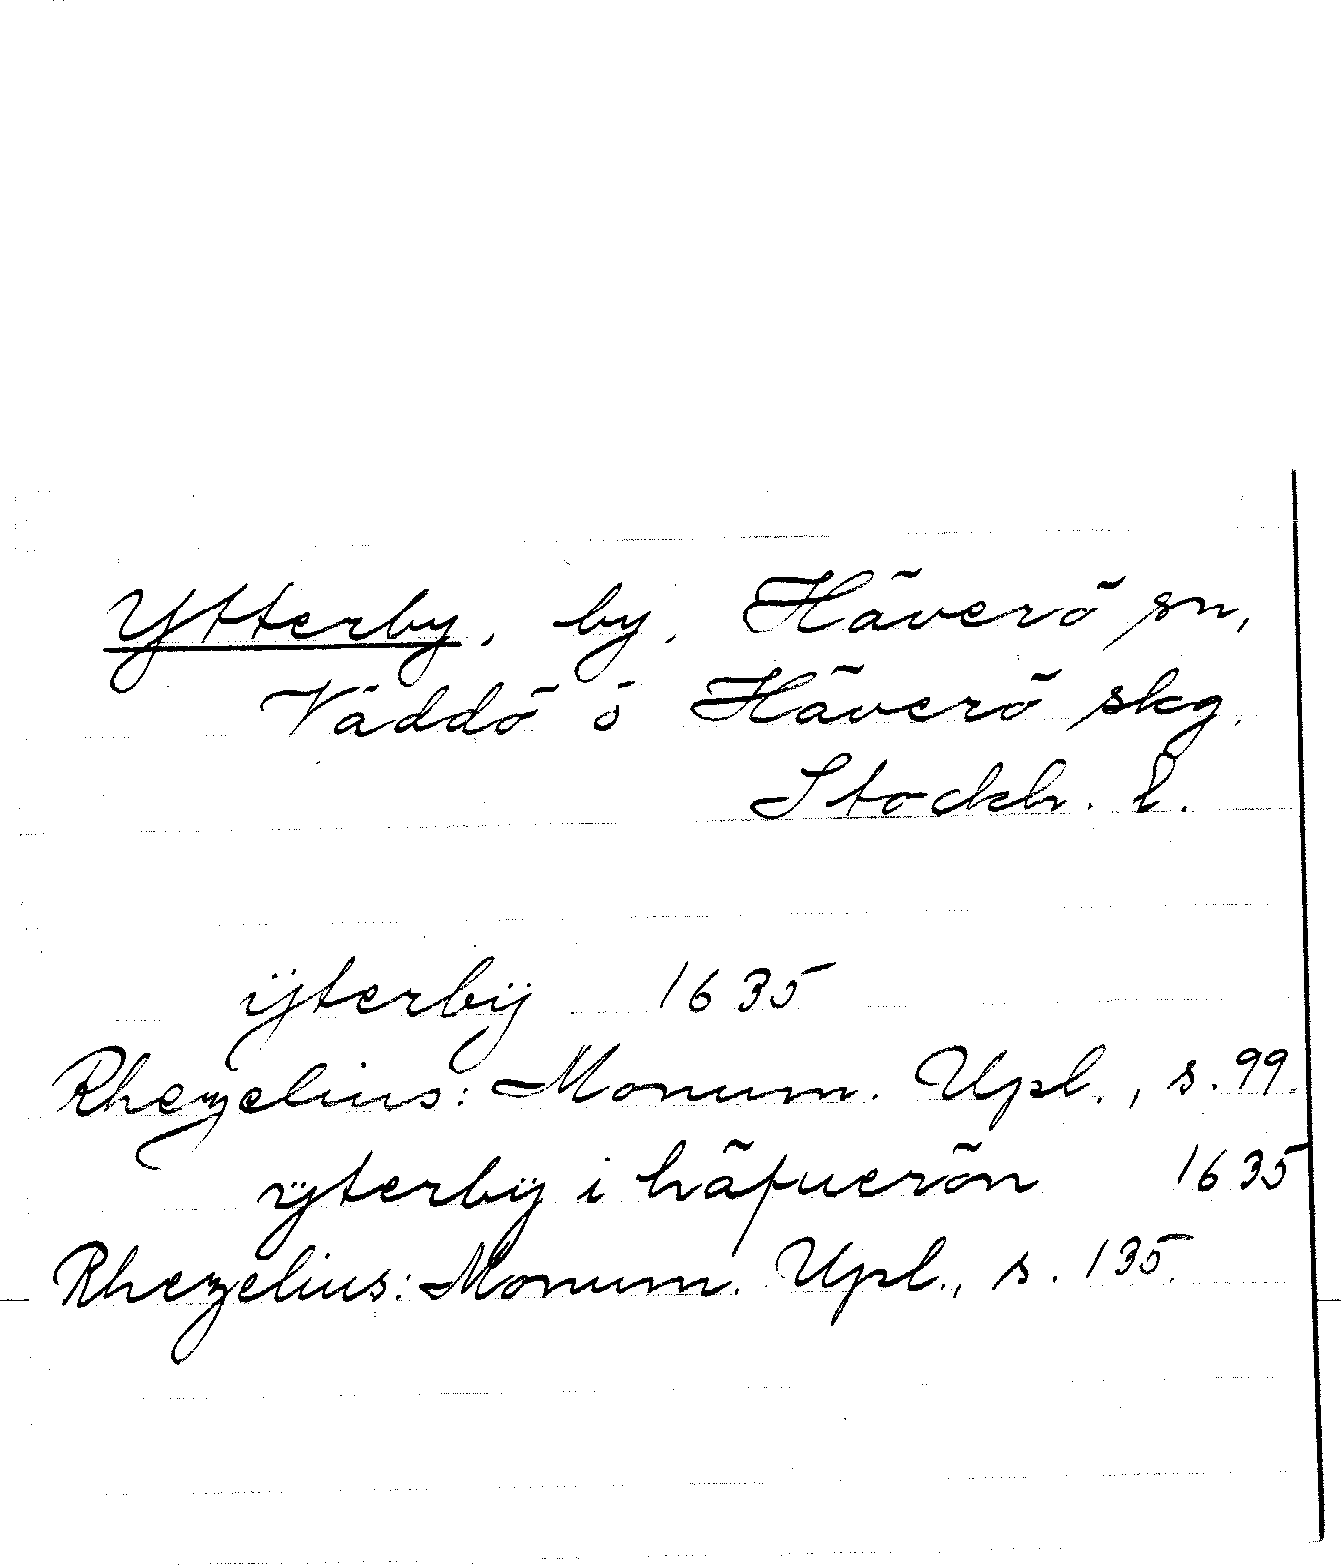 Ytterby, by, Häverö sn,
Väddö o Häverö skg.
Stockh. l.
ÿterbÿ 1635
Rhezelius: Monum. Upl., s. 99.
ÿterbÿ i häfuerön 1635
Rhezelius: Monum. Upl., s. 135.